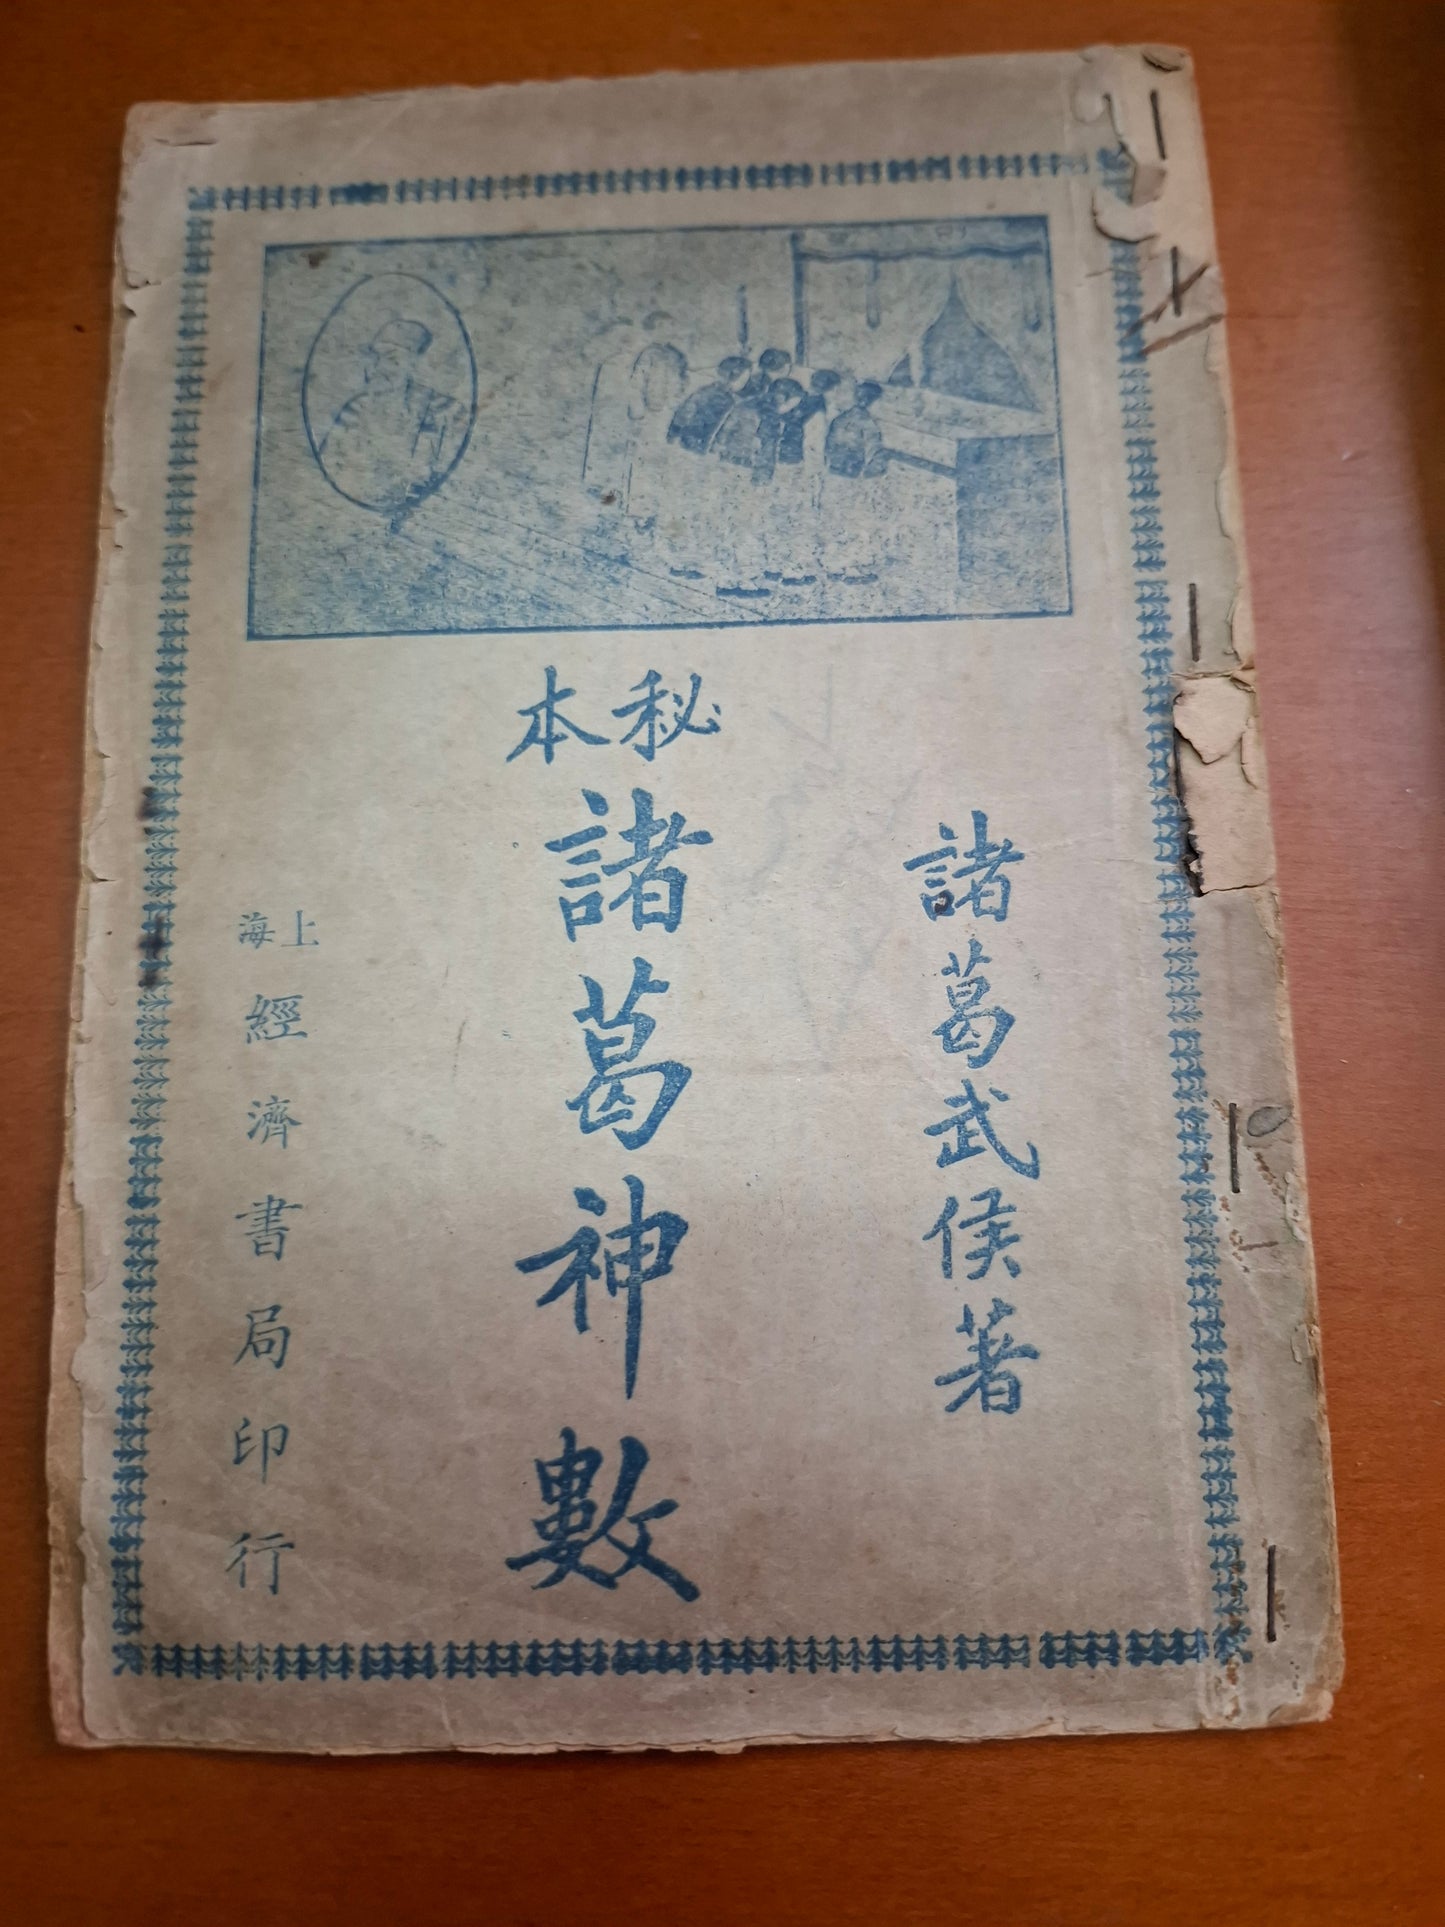 諸葛武侯著
秘本
諸葛神數
上海
經濟書局印行